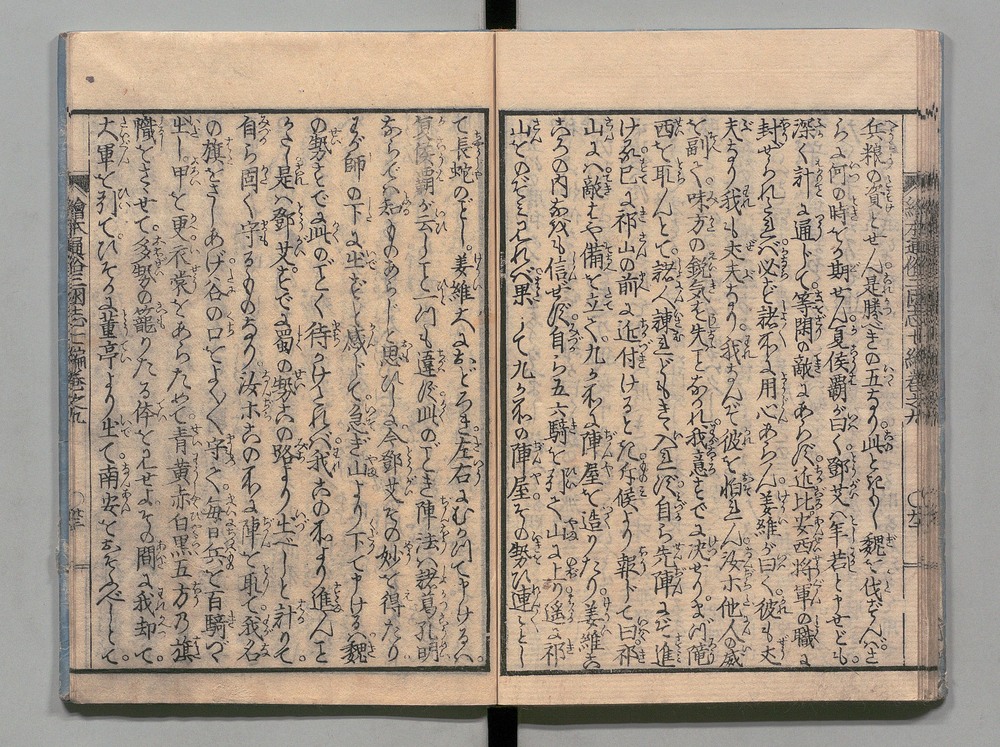 兵粮の資とせん是勝べきの五ッなり此ときなく魏を伐ずんバさ
らに何の時をか期せん夏侯覇が曰く鄧艾ハ年若しと申せども
深く計に通じて等閑の敵にあらず近比安西将軍の職に
封ぜられたれバ必ず諸所に用心あらん姜維が曰く彼も丈
夫なり我も丈夫なり我なんぞ彼を怕れん汝ホ他人の威
を副く味方の鋭気を失ことなかれ我意すでに決せりまづ隴
西を取んとて諸人諫れどもきゝ入れず自ら先陣にぞ進
ける已に祁山の前に近付けるとき斥候より報じて曰祁
山にハ敵はや備を立て九か所に陣屋を造りたり姜維こ
ころの内なを信ぜず自ら五六騎を引て山に上り遙に祁
山をのぞミみれバ果して九か所の陣屋その勢ひ連ことし
て長蛇のごとし姜維大におどろき左右にむかつて申けるハ
夏侯覇が云しこと一つも違ず此のごとき陣法ハ諸葛孔明
ならでハ知ものあらじと思ひしに今鄧艾その妙を得たり
わが師の下に出ずと感じて急ぎ山より下て申けるハ魏
の勢すでに此のごとく待かけたれバ我この所より進んこと
かたし是ハ鄧艾すでに蜀の勢この路より出べしと計りて
自ら固く守るものなり汝ホこの所に陣を取て我名
の旗をさしあげ谷の口をよく守て毎日兵を百騎づゝ
出し甲を更衣裳をあらためて青黄赤白黒五方の旗
幟をさゝせて多勢の籠りたる体をみせよその間に我却て
大軍を引てひそかに董亭より出て南安をおそふべしとて
繪本通俗三國志七編巻之九